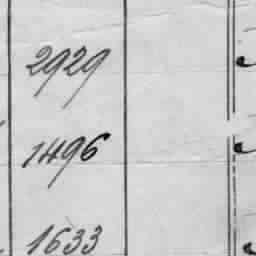 2929
1496
1633